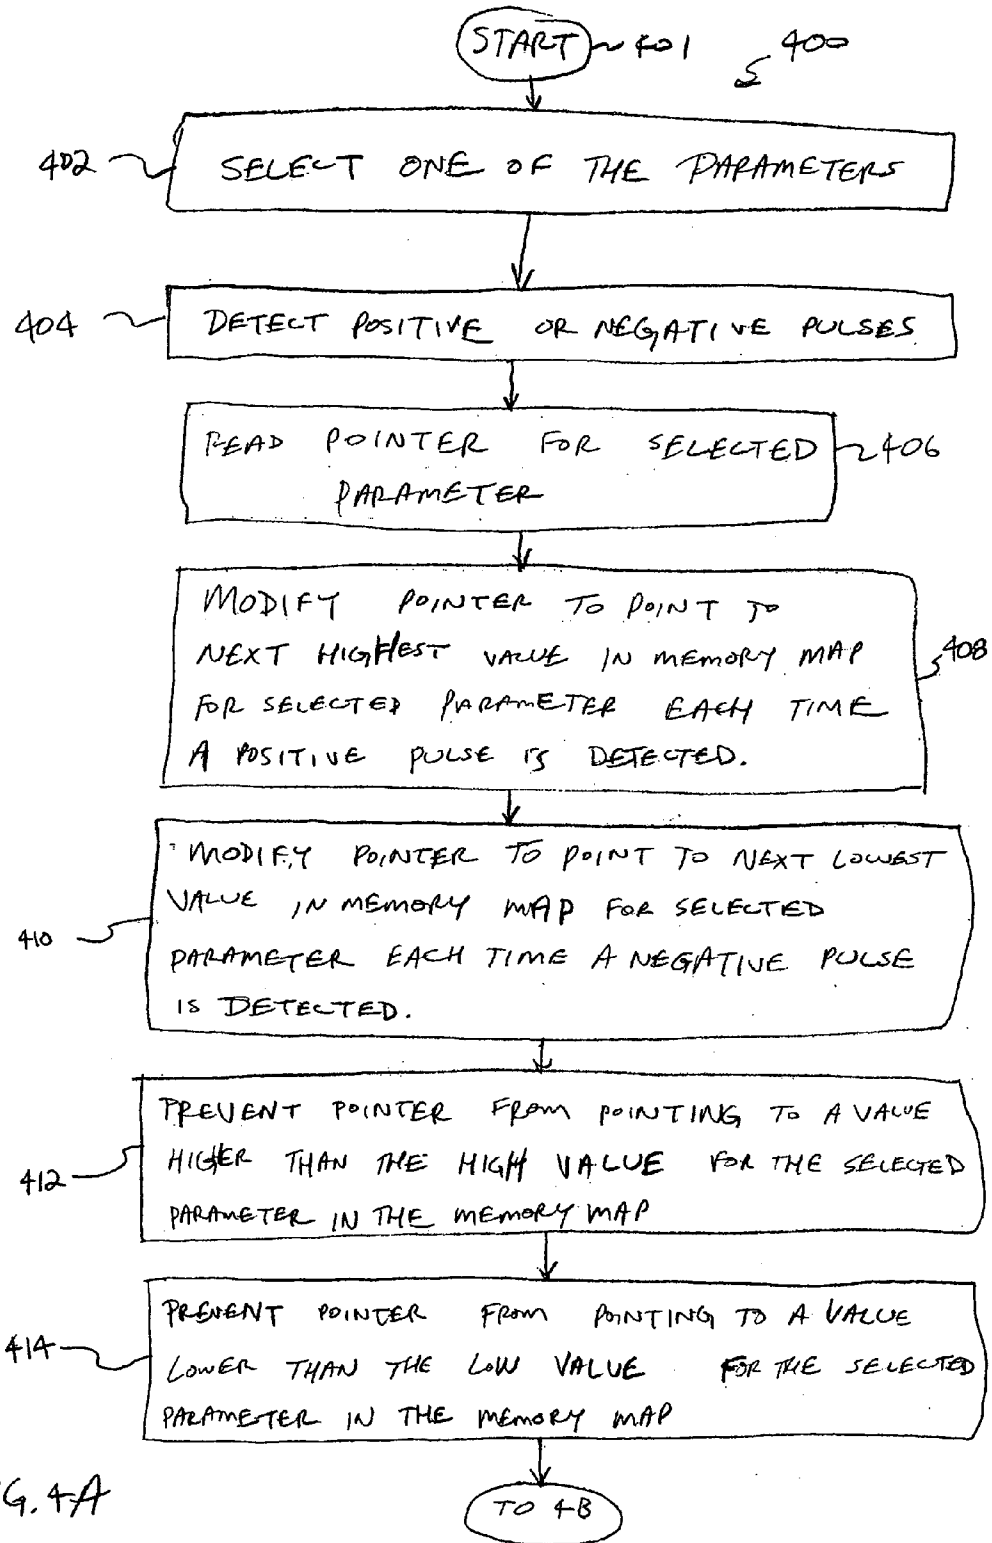 START 401
400
402 SELECT ONE OF THE PARAMETERS
404 DETECT POSITIVE OR NEGATIVE PULSES
READ POINTER FOR SELECTED 406
PARAMETER
MODIFY POINTER TO POINT TO
NEXT HIGHEST VALUE IN MEMORY MAP 408
FOR SELECTED PARAMETER EACH TIME
A POSITIVE PULSE IS DETECTED.
MODIFY POINTER TO POINT TO NEXT LOWEST
VALUE IN MEMORY MAP FOR SELECTED
410 PARAMETER EACH TIME A NEGATIVE PULSE
IS DETECTED.
PREVENT POINTER FROM POINTING TO A VALUE
412 HIGHER THAN THE HIGH VALUE FOR THE SELECTED
PARAMETER IN THE MEMORY MAP
PREVENT POINTER FROM POINTING TO A VALUE
414 LOWER THAN THE LOW VALUE FOR THE SELECTED
PARAMETER IN THE MEMORY MAP
G. 4A
TO 4B